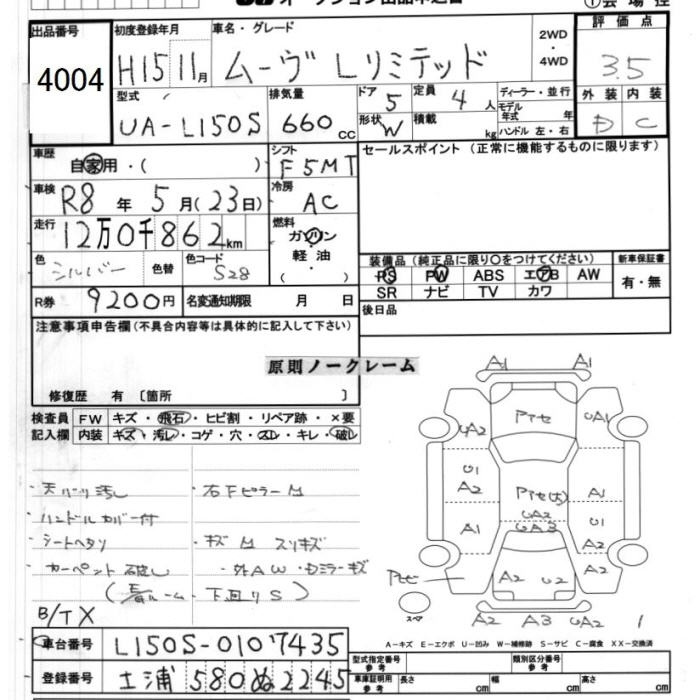 オークション出品申込書
①会場控
出品番号 初度登録年月 車名・グレード 2WD・4WD 評価点
4004 H15 11月 ムーヴ Lリミテッド 3.5
型式 排気量 ドア 5 定員 4人 ディーラー・並行 外装 内装
UA-L150S 660cc 形状 W 積載 kg モデル年式 年 ハンドル 左・右 D C
車歴 自家用・( ) シフト F5MT セールスポイント(正常に機能するものに限ります)
車検 R8年 5月(23日) 冷房 AC
走行 12万0千862km 燃料 ガソリン・軽油・( )
色 シルバー 色替 色コード S28 装備品(純正品に限り○をつけてください) 新車保証書
PS PW ABS エアB AW 有・無
SR ナビ TV カワ
R券 9200円 名変通知期限 月 日 後日品
注意事項申告欄(不具合内容等は具体的に記入して下さい)
原則ノークレーム
修復歴 有〔箇所 〕
検査員記入欄 FW キズ・飛石・ヒビ割・リペア跡・×要
内装 キズ・汚レ・コゲ・穴・スレ・キレ・破レ
天バリ汚し ・右Fピラー M
・ハンドルカバー付
・シートヘタリ ・キズ M スリキズ
・カーペント ・外AW・Dミラーキズ
ルーム・下廻りS)
B/TX
A1 A1
Pアセ UA2 UA1
U1 A2 Pアセ(大) A1
UA2 UA3
A1 U1 A2
A2 U2 A2
スペア
A2 A3 UA2
A-キズ E-エクボ U-凹み W-補修跡 S-サビ C-腐食 XX-交換済
車台番号 L150S-0107435 型式指定番号 参考 類別区分番号 参考
登録番号 土浦 580 ぬ 2245 車庫証明用 参考 長さ cm 幅 cm 高さ cm